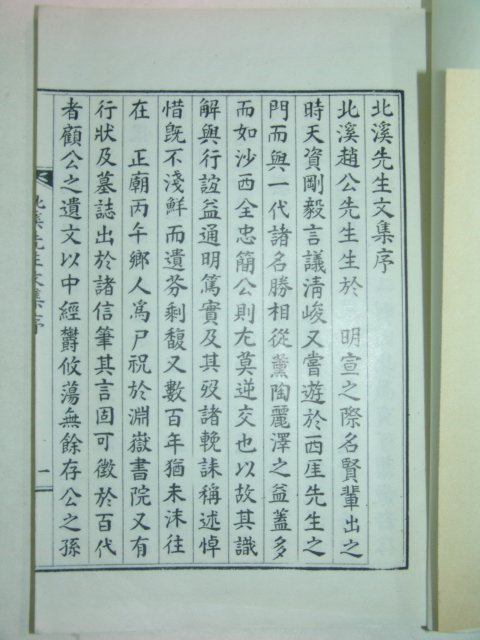 北溪先生文集序
北溪趙公先生生於　明宣之際名賢輩出之
時天資剛毅言議淸峻又嘗遊於西厓先生之
門而與一代諸名勝相從薰陶麗澤之益蓋多
而如沙西全忠簡公則尤莫逆交也以故其識
解與行誼益通明篤實及其歿諸輓誄稱述悼
惜旣不淺鮮而遺芬剩馥又數百年猶未沫往
在　正廟丙午鄕人爲尸祝於淵嶽書院又有
行狀及墓誌出於諸信筆其言固可徵於百代
者顧公之遺文以中經欝攸蕩無餘存公之孫
北溪先生文集序
一